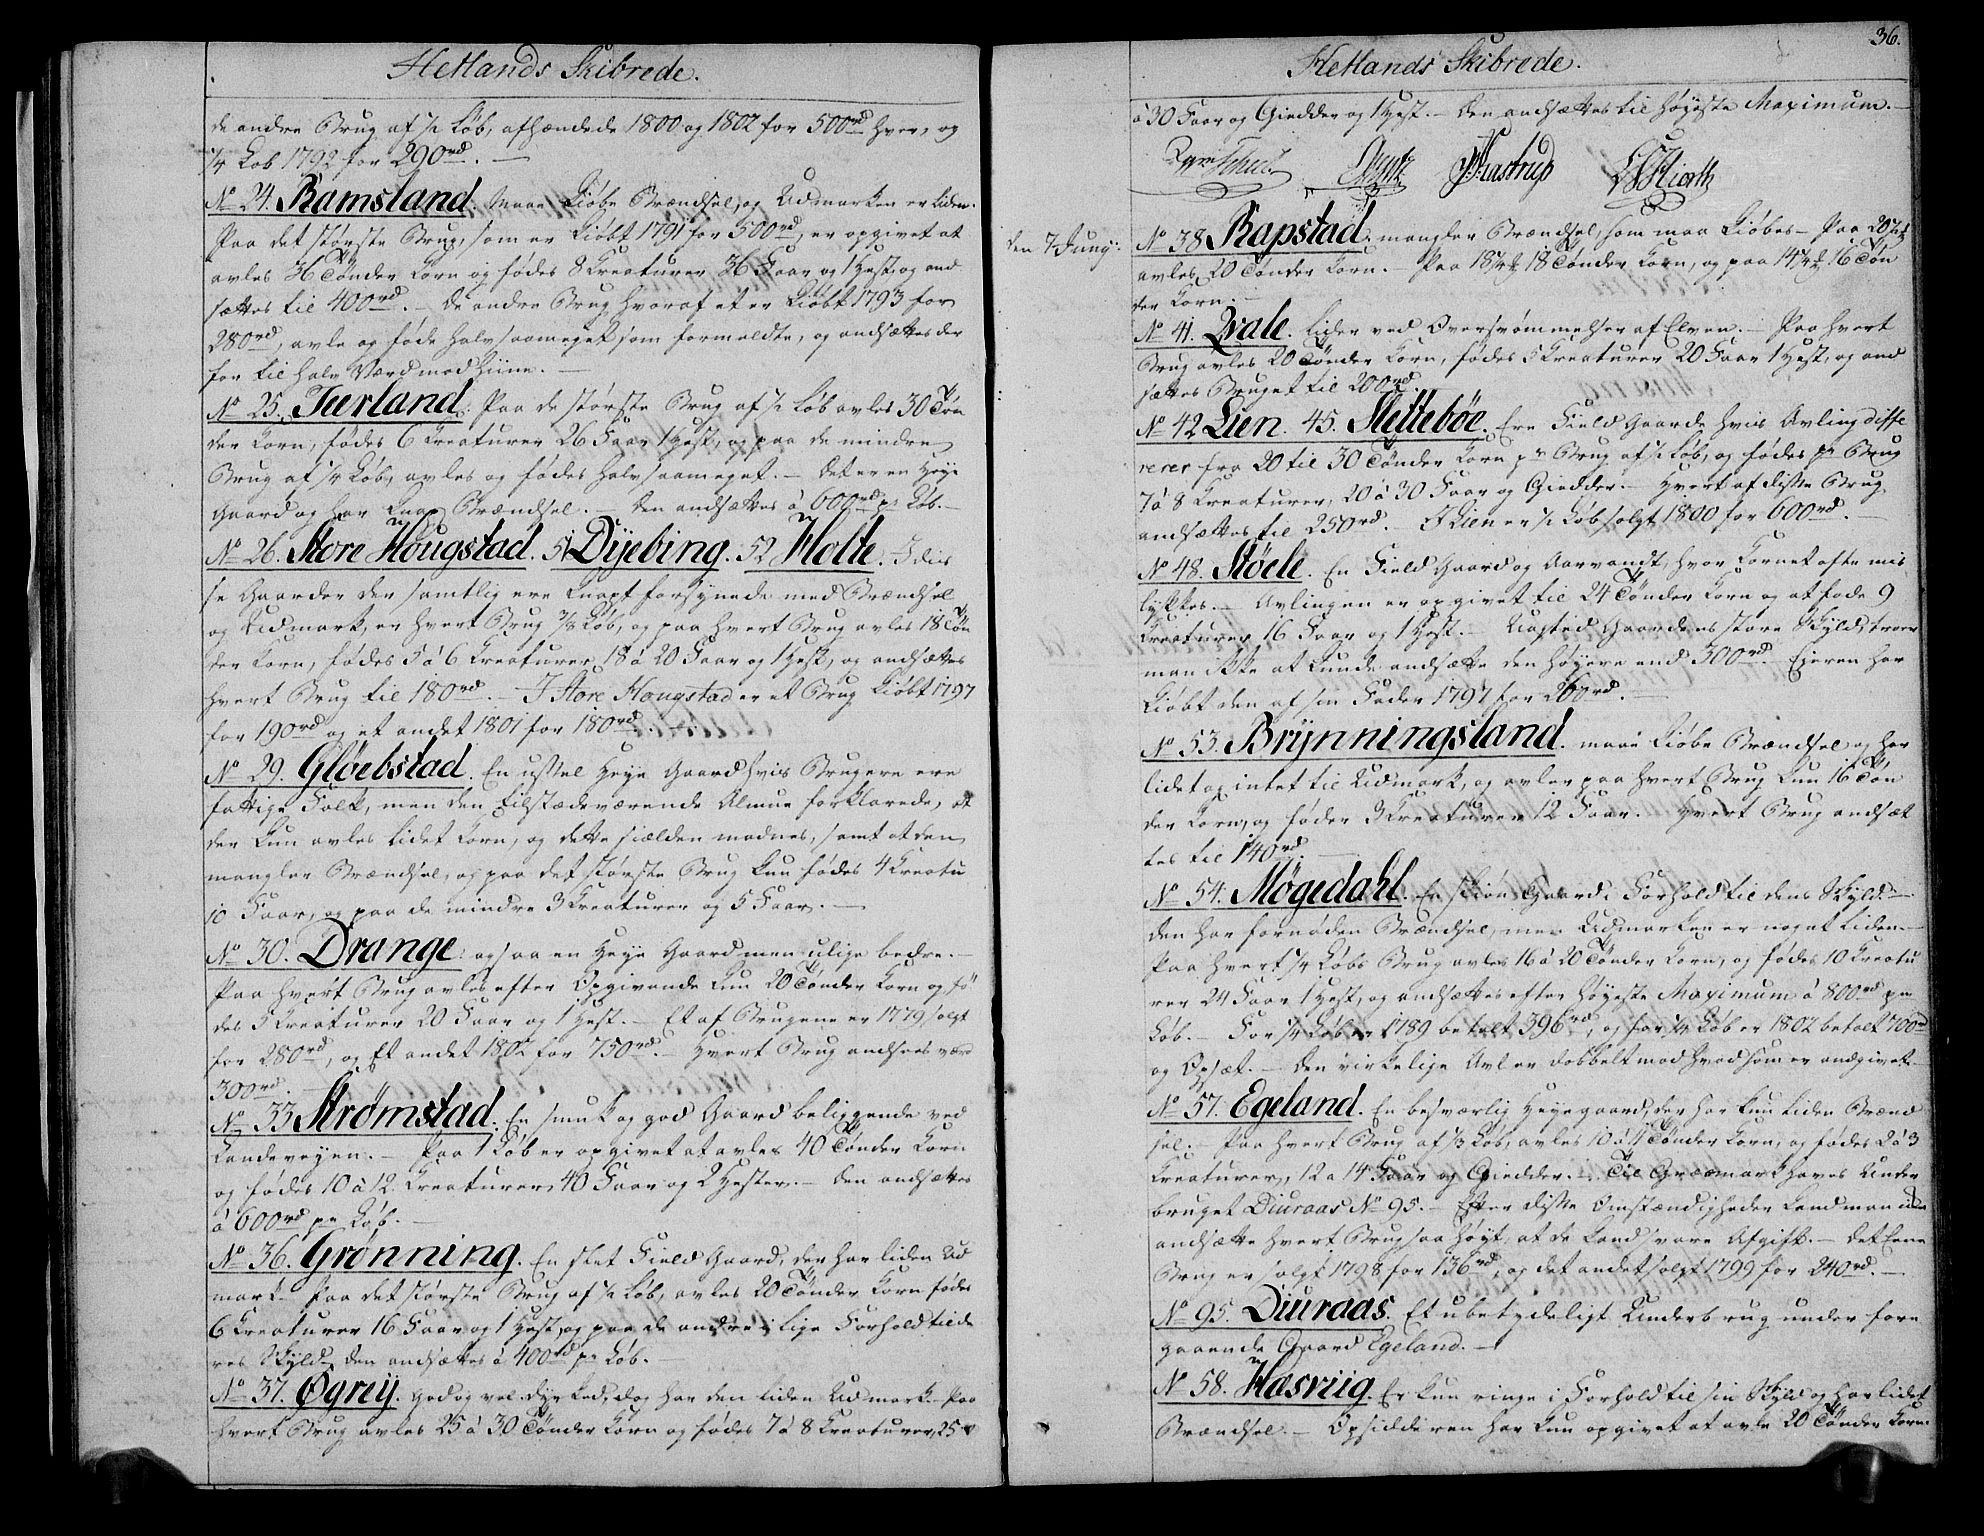 Hetlands Skibrede.
de andre Brug af ½ Løb, afhændede 1800 og 1802 for 500rd hver, og
¼ Løb 1792 for 290rd. —
No 24. Ramsland. maae kiøbe Brændsel, og Udmarken er liden.
Paa det største Brug, som er kiøbt 1791 for 500rd, er opgivet at
avles 36 Tønder Korn og fødes 8 Kreaturer 36 Faar og 1 Hest, og and
sættes til 400rd. — De andre Brug, hvoraf et er kiøbt 1793 for
280rd, avle og føde halv saameget som formeldte, og andsættes der
for til halv Værd mod hiine. —
No 25. Tærland. Paa de største Brug af ½ Løb avles 30 Tøn
der Korn, fødes 6 Kreaturer 26 Faar 1 Hest, og paa de mindre
Brug af ¼ Løb, avles og fødes halv saameget. — Det er en Heye
Gaard og har knap Brændsel. — Den andsættes á 600rd pr Løb. —
No 26. Store Hougstad. 51 Dyebing. 52 Holte. I dis
se Gaarder der samtlig ere knapt forsynede med Brændsel
og Udmark, er hvert Brug ⅜ Løb, og paa hvert Brug avles 18 Tøn
der Korn, fødes 5 á 6 Kreaturer, 18 á 20 Faar og 1 Hest, og andsættes
hvert Brug til 180rd. — I Store Hougstad er et Brug kiøbt 1797
for 190rd og et andet 1801 for 180rd. —
No 29. Gløebstad. En ussel Heye Gaard hvis Brugere ere
fattige Folk, men den tilstædeværende Almue forklarede, at
der kun avles lidet Korn, og dette sielden modnes, samt at den
mangler Brændsel, og paa det største Brug kun fødes 4 Kreatu
10 Faar, og paa de mindre 3 Kreaturer og 5 Faar. —
No 30. Drange, ogsaa en Heye Gaard men ulige bedre. —
Paa hvert Brug avles efter Opgivende kun 20 Tønder Korn og fø
des 5 Kreaturer 20 Faar og 1 Hest. — Et af Brugene er 1779 solgt
for 280rd, og Et andet 1802 for 750rd. — Hvert Brug andsees værd
300rd. —
No 33 Strømstad. En smuk og god Gaard beliggende ved
Landeveyen. — Paa 1 Løb er opgivet at avles 40 Tønder Korn
og fødes 10 á 12 Kreaturer, 40 Faar og 2 Hester. — Den andsættes
á 600rd pr Løb. —
No 36. Grønning. En slet Field Gaard, der har liden Ud
mark. Paa det største Brug af ½ Løb, avles 20 Tønder Korn fødes
6 Kreaturer 16 Faar og 1 Hest, og paa de andre i lige Forhold til de
res Skyld. Den andsættes á 400rd pr Løb. —
No 37. Øgreij. god og vel dyrked, dog har den liden Udmark. Paa
hvert Brug avles 25 á 30 Tønder Korn og fødes 7 á 8 Kreaturer, 25
36.
Hetlands Skibrede.
á 30 Faar og Giedder og 1 Hest. — Den andsættes til høyeste Maximum. —
Kastrup Hiorth
den 7 Juny:
No 38. Rapstad, mangler Brændsel, som maa kiøbes. — Paa 20
avles 20 Tønder Korn. — Paa 18 18 Tønder Korn, og paa 14 16 Tøn
der Korn. —
No 41. Qvale. lider ved Oversvømmelser af Elven. — Paa hvert
Brug avles 20 Tønder Korn, fødes 5 Kreaturer 20 Faar 1 Hest, og and
sættes Bruget til 200rd. —
No 42 Lien. 45. Slettebøe. Ere Field Gaarde hvis Avling diffe
rerer fra 20 til 30 Tønder Korn pr Brug af ½ Løb, og fødes pr Brug
7 á 8 Kreaturer, 20 á 30 Faar og Giedder. — Hvert af disse Brug
andsættes til 250rd. — I Lien er ½ Løb solgt 1800 for 600rd. —
No 48. Støele. En Field Gaard og Aarvandt, hvor Kornet ofte mis
lykkes. — Avlingen er opgivet til 24 Tønder Korn og at føde 9
Kreaturer 16 Faar og 1 Hest. — Uagtet Gaardens store Skyld, troer
man ikke at kunde andsætte den høyere end 300rd. — Eieren har
kiøbt den af sin Fader 1797 for 260rd. —
No 53. Brynningsland. maae kiøbe Brændsel og har
lidet og intet til Udmark, og avler paa hvert Brug kun 16 Tøn
der Korn, og føder 3 Kreaturer 12 Faar. Hvert Brug andsæt
tes til 140rd. —
No 54. Møgedahl. En skiøn Gaard i Forhold til dens Skyld. —
Den har fornøden Brændsel, men Udmarken er noget liden. —
Paa hvert ¼ Løbs Brug avles 16 á 20 Tønder Korn, og fødes 10 Kreatu
rer 24 Faar 1 Hest, og andsættes efter høyeste Maximum á 800rd pr
Løb. — For ¼ Løb er 1789 betalt 396rd, og for ¼ Løb er 1802 betalt 700rd
og Opsæt. — Den virkelige Avl er dobbelt mod hvad som er andgivet. —
No 57. Egeland. En besværlig Heyegaard, der har kun liden Brænd
sel. — Paa hvert Brug af ⅓ Løb, avles 10 á 11 Tønder Korn, og fødes 2 á 3
Kreaturer, 12 a 14 Faar og Giedder. — Til Græsmark haves Under
bruget Diuraas No 95. — Efter disse Omstændigheder kand man ikke
andsætte hvert Brug saa høyt, at de kand svare Afgift. — Det Eene
Brug er solgt 1798 for 136rd, og det andet solgt 1799 for 240rd. —
No 95. Diuraas. Et ubetydeligt Underbrug under fore
gaaende Gaard Egeland. —
No 58. Hæsviig. Er kun ringe i Forhold til sin Skyld og har lidet
Brændsel. — Opsidderen har kun opgivet at avle 20 Tønder Korn